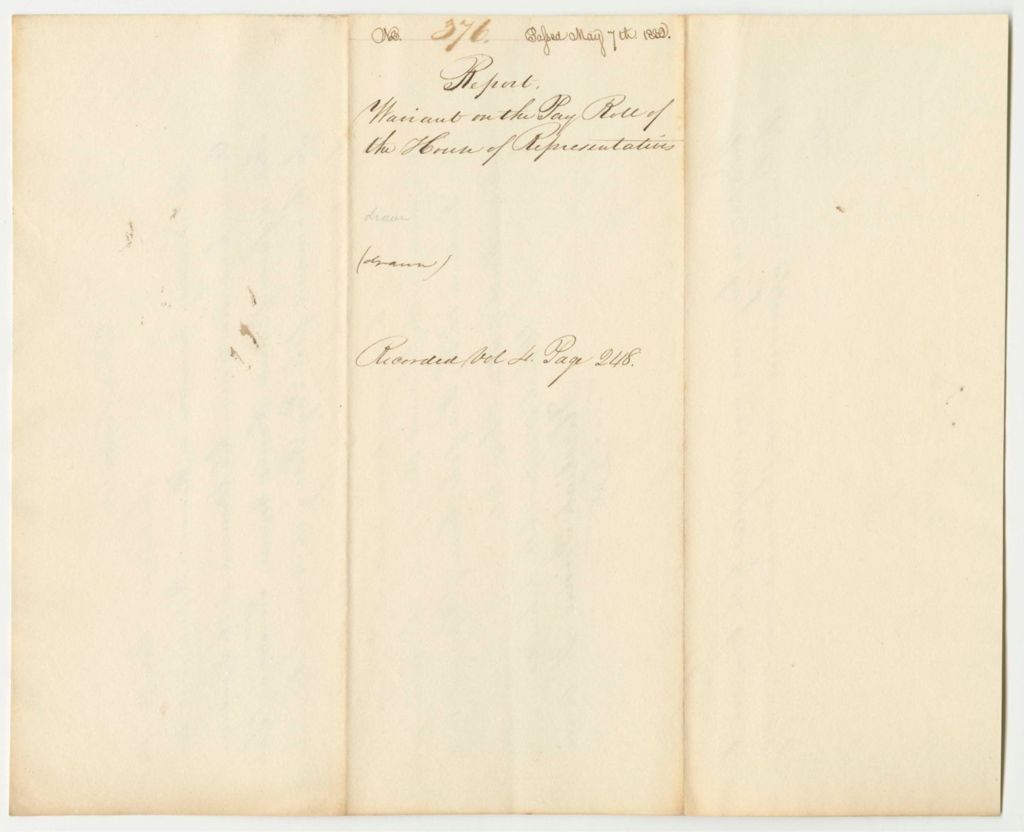 No. 376. Passed May 7th
Report.
Warrant on the Pay Roll of
the House of Representatives
drawn
(drawn)
Recorded Vol 4. Page 248.